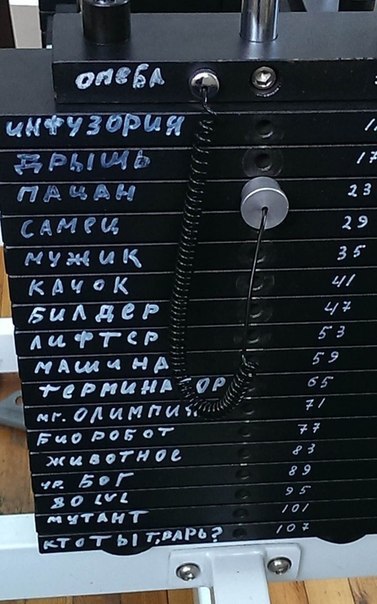 ОМЕБА
ИНФУЗОРИЯ
ДРЫЩЬ 17
ПАЦАН 23
САМЕЦ 29
МУЖИК 35
КАЧОК 41
БИЛДЕР 47
ЛИФТЕР 53
МАШИНА 59
ТЕРМИНАТОР 65
мг. ОЛИМПИЯ 71
БИОРОБОТ 77
ЖИВОТНОЕ 83
УР. БОГ 89
80 LVL 95
МУТАНТ 101
КТО ТЫ,ТВАРЬ? 107